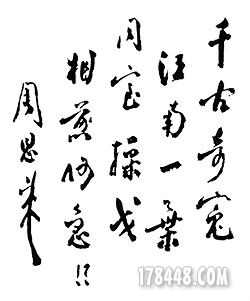 千古奇冤
江南一葉
同室操戈
相煎何急!?
周恩来
178448.COM